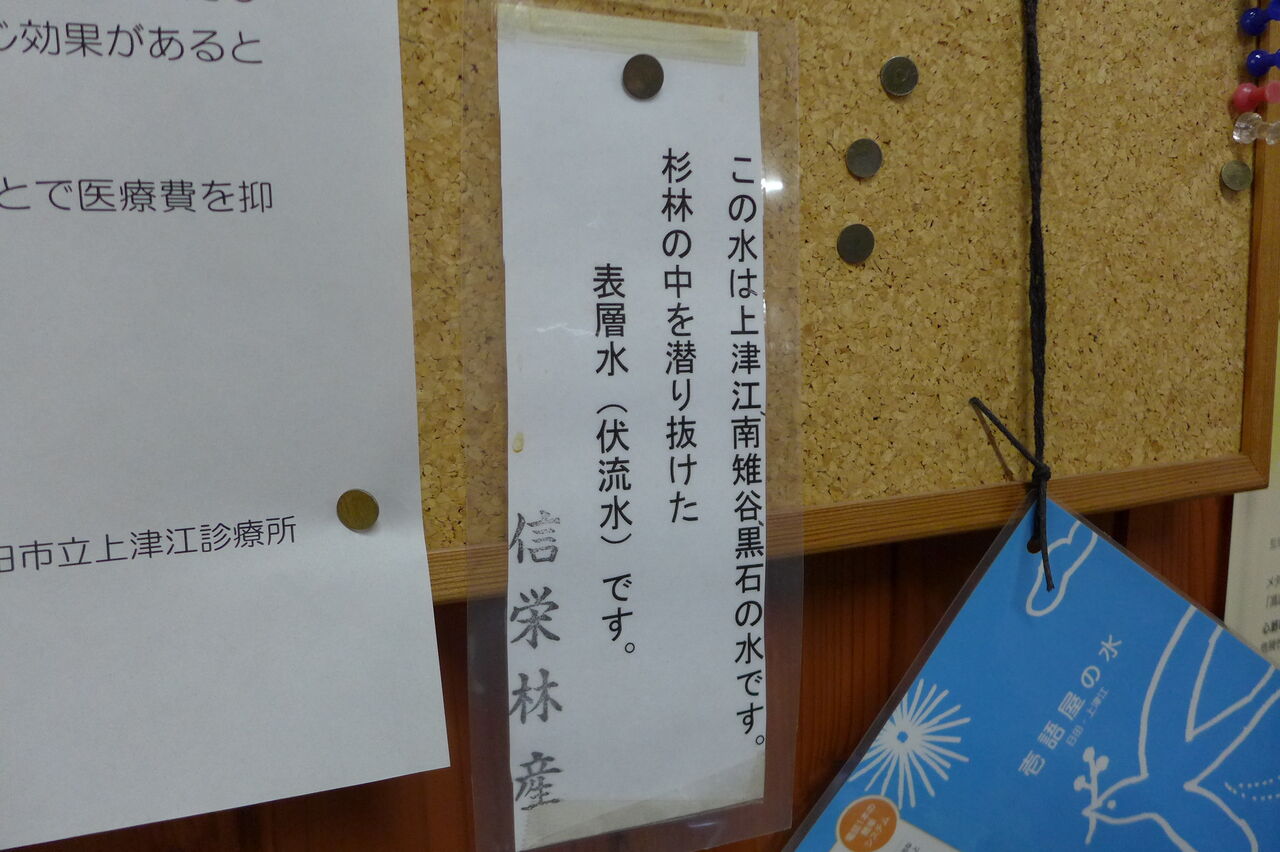 じ効果があると
とで医療費を抑
田市立上津江診療所
この水は上津江、南雉谷、黒石の水です。
杉林の中を潜り抜けた
表層水（伏流水）です。
信栄林産
壱語屋の水
日田・上津江